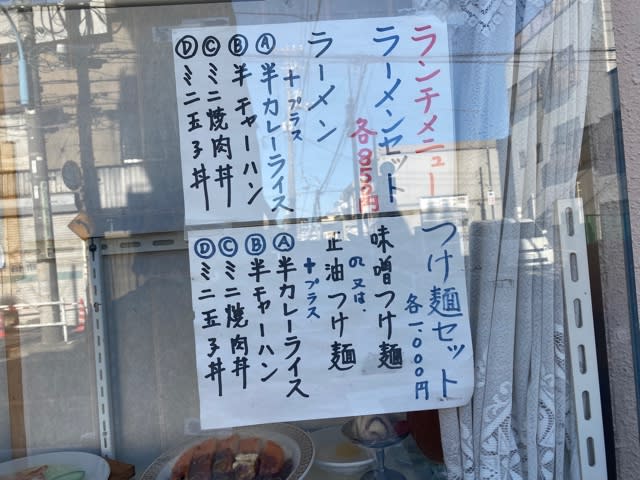 ランチメニュー
ラーメンセット
各850円
ラーメン
+プラス
Ⓐ半カレーライス
Ⓑ半チャーハン
Ⓒミニ焼肉丼
Ⓓミニ玉子丼
つけ麺セット
各1,000円
味噌つけ麺
の又は、
正油つけ麺
+プラス
Ⓐ半カレーライス
Ⓑ半チャーハン
Ⓒミニ焼肉丼
Ⓓミニ玉子丼